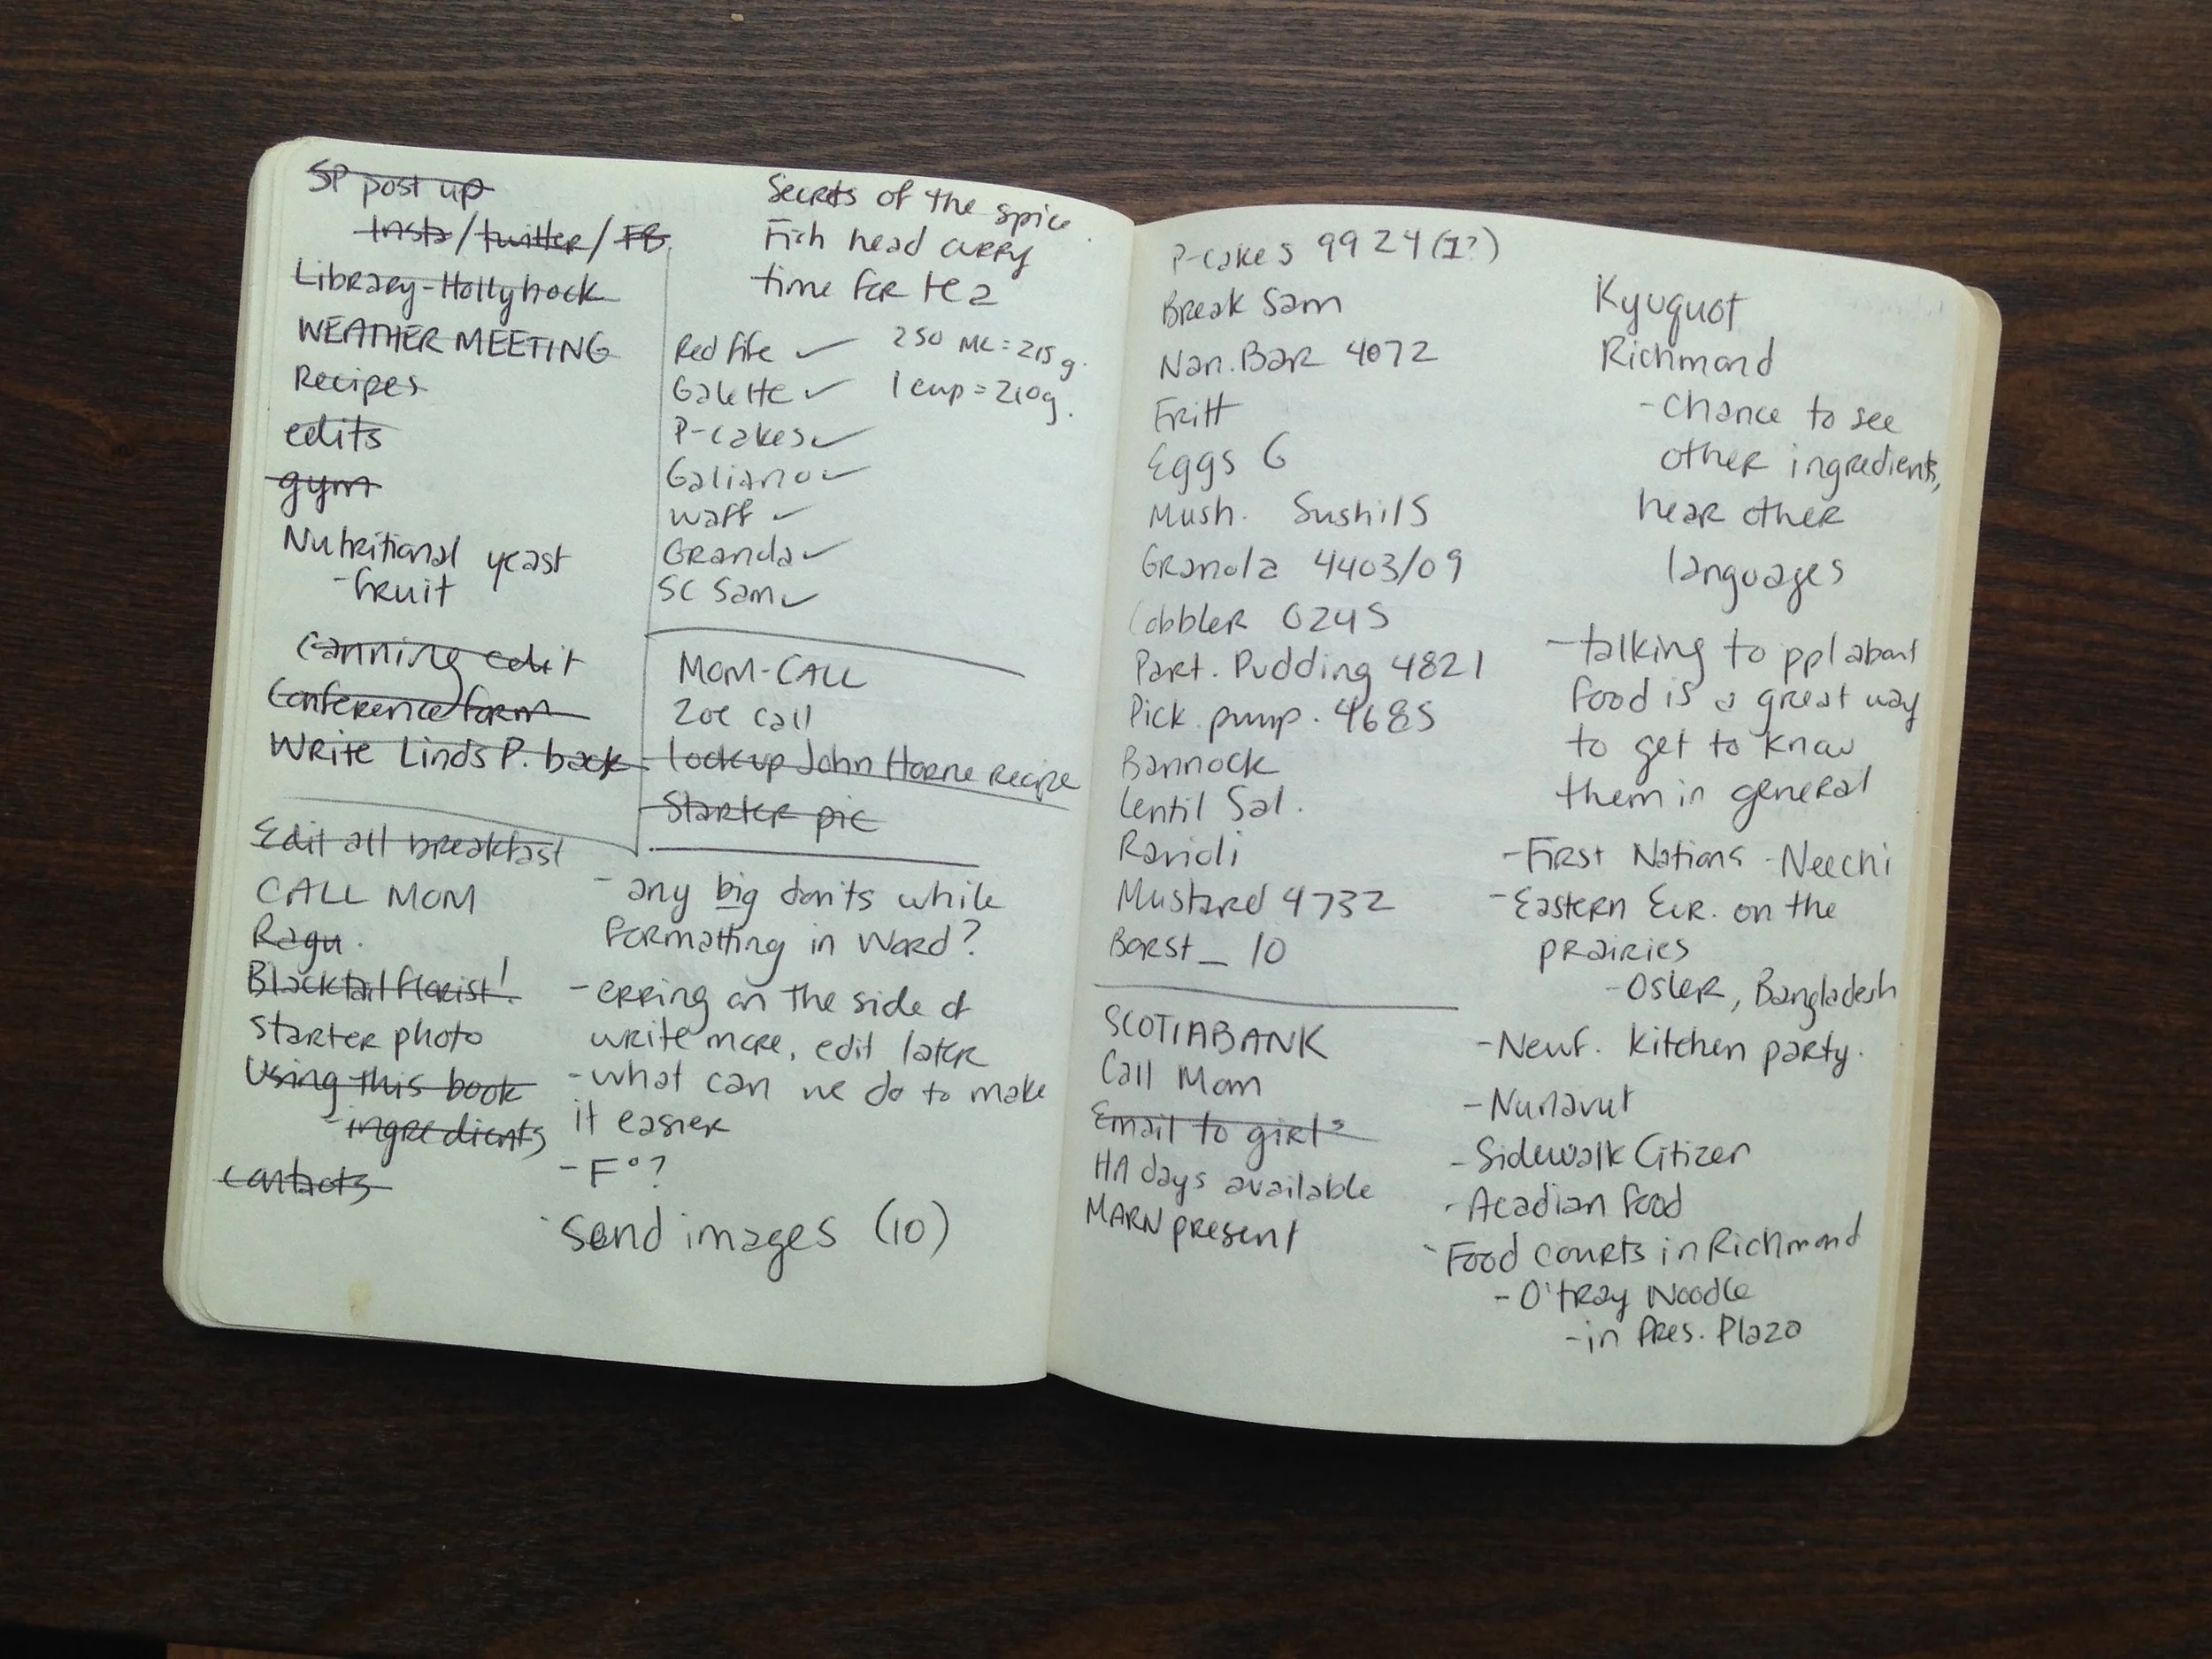 SP post up
Insta/twitter/FB
Library-Hollyhock
WEATHER MEETING
Recipes
edits
gym
Nutritional yeast
-fruit
Canning edit
Conference form
Write Linds P. back
Edit all breakfast
CALL MOM
Ragu.
Blacktail florist!
Starter photo
Using this book
-ingredients
contacts
Secrets of the spice
Fish head curry
time for tea
Red fife ✓
250 ML = 215g.
Galette ✓
1 cup = 210g.
P-cakes ✓
Galiano ✓
Waff ✓
Granola ✓
SC Sam ✓
MOM-CALL
Zoe call
Look up John Horne recipe
Starter pic
- any big don'ts while
formatting in Word?
- erring on the side of
write more, edit later
- what can we do to make
it easier
- F°?
Send images (10)
P-cakes 9924 (1?)
Break Sam
Nan. Bar 4072
Fritt
Eggs 6
Mush. Sushi 15
Granola 4403/09
Cobbler 0245
Part. Pudding 4821
Pick. pump. 4685
Bannock
Lentil Sal.
Ravioli
Mustard 4732
Borst_ 10
SCOTIABANK
Call Mom
Email to girls
HA days available
MARN present
Kyuquot
Richmond
- chance to see
other ingredients,
hear other
languages
- talking to ppl about
food is a great way
to get to know
them in general
- First Nations - Neechi
- Eastern Eur. on the
prairies
- Osler, Bangladesh
- Newf. kitchen party.
- Nunavut
- Sidewalk Citizer
- Acadian food
- Food courts in Richmond
- O'tray Noodle
- in Pres. Plaza